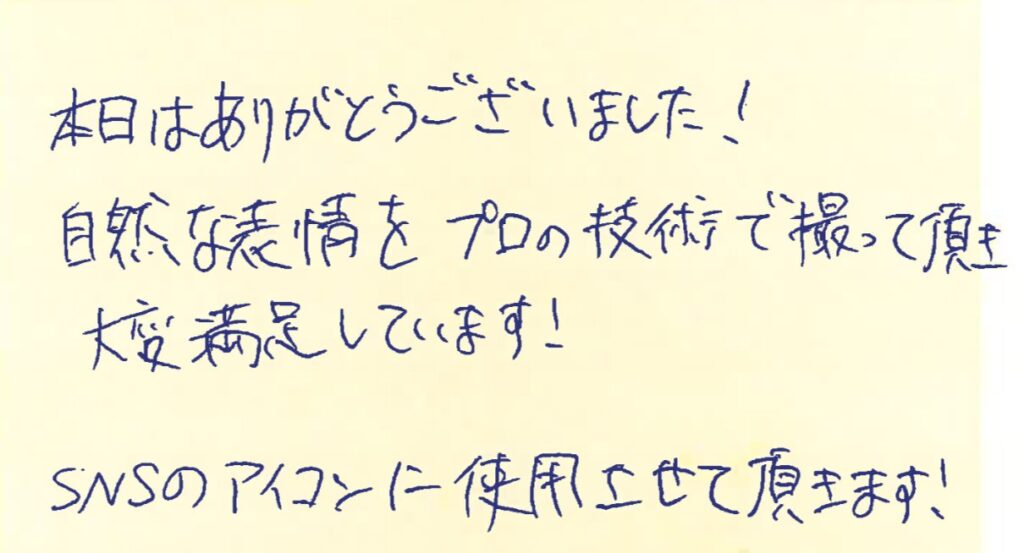 本日はありがとうございました!
自然な表情を プロの技術で撮って頂き
大変満足しています!
SNSのアイコンに使用させて頂きます!